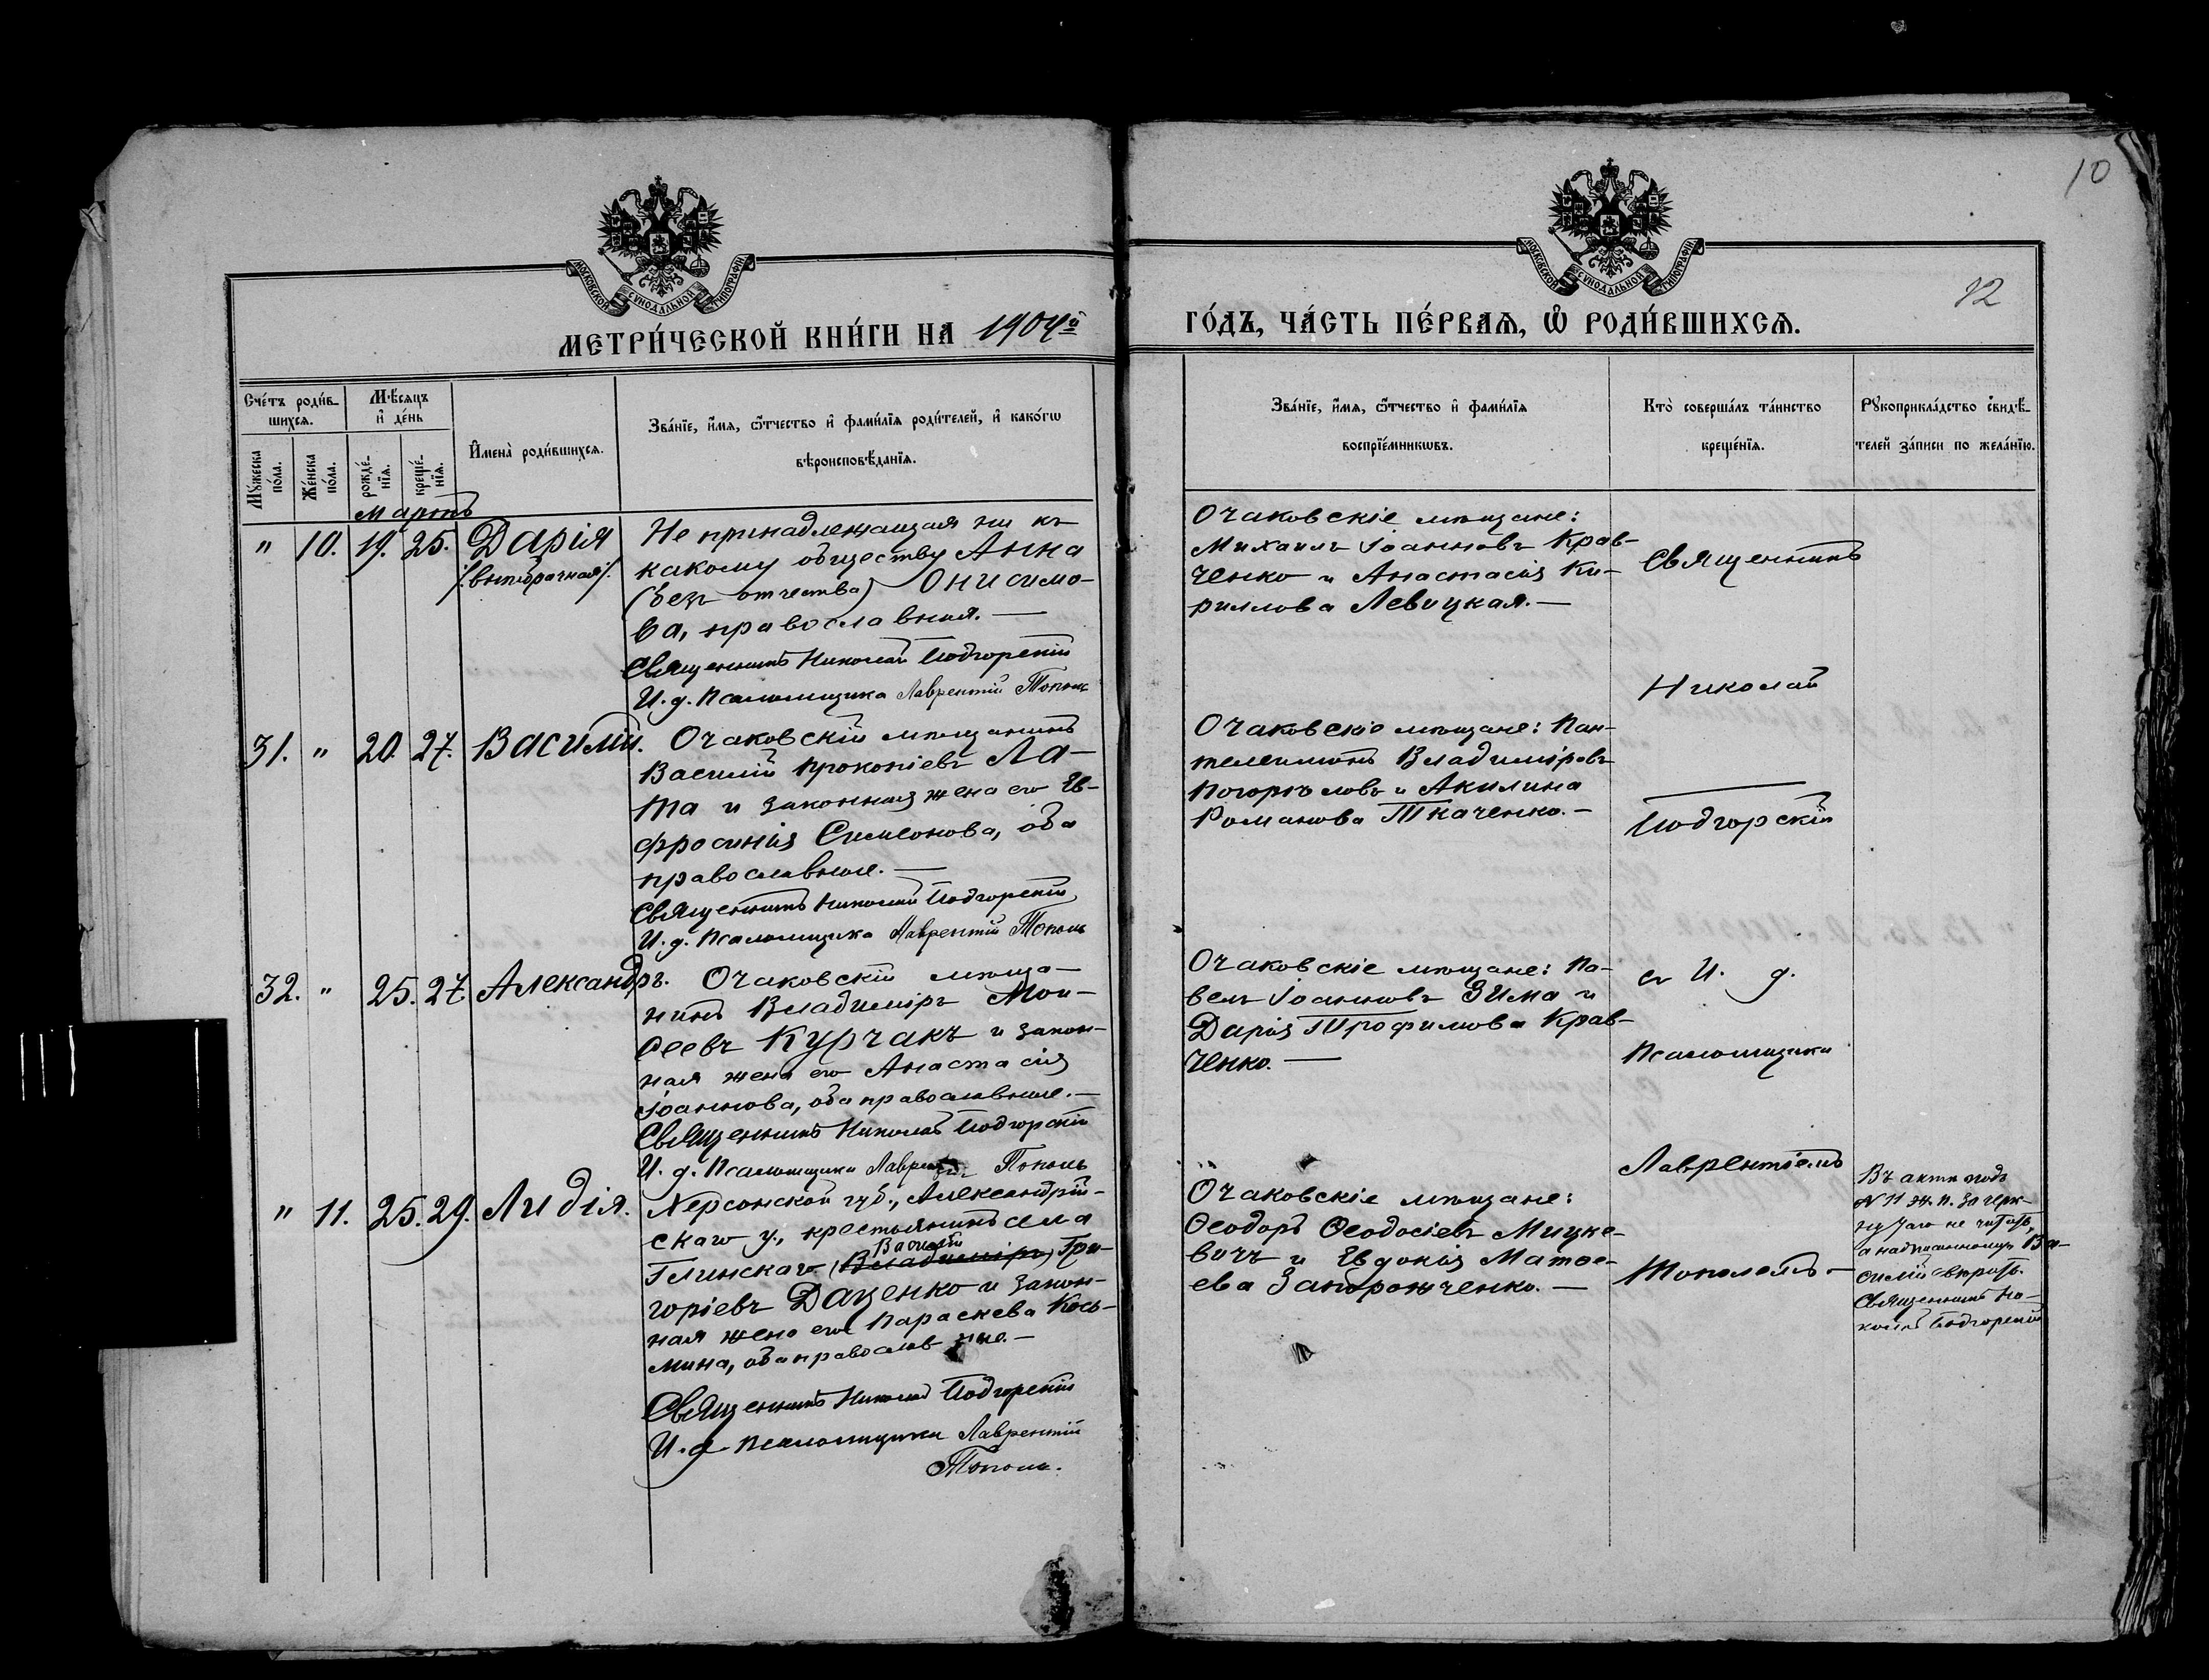 10
12
МОСКОВСКОЙ СѴНОДАЛЬНОЙ ТИПОГРАФІИ
МОСКОВСКОЙ СѴНОДАЛЬНОЙ ТИПОГРАФІИ
МЕТРИ́ЧЕСКОЙ КНИ́ГИ НА 1904й
ГО́ДЪ, ЧА́СТЬ ПЕ́РВАЯ, Ѽ РОДИ́ВШИХСЯ.
Сче́тъ роди́в-
шихся.
Мѣ́сяцъ
и҆ де́нь
Мꙋ́жеска
по́ла.
Же́нска
по́ла.
рожде́-
нїя.
креще́-
нїя.
И҆мена̀ роди́вшихся.
Зва́нїе, и҆́мя, ѻ҆́тчество и҆ фами́лїя роди́телей, и҆ како́гѡ
вѣроисповѣ́данїя.
Зва́нїе, и҆́мя, ѻ҆́тчество и҆ фами́лїя
воспрїе́мникѡвъ.
Кто̀ соверша́лъ та́инство
креще́нїя.
Рꙋкоприкла́дство свидѣ́-
телей за́писи по жела́нїю.
Мартъ
" 10. 19. 25. Дарія
/:внѣбрачная:/
Не принадлежащая ни къ
какому обществу Анна
(безъ отчества) Онисимо-
ва, православная. —
Священникъ Николай Подгорскій
И. д. Псаломщика Лаврентій Тополь
Очаковскіе мѣщане:
Михаилъ Іоанновъ Крав-
ченко и Анастасія Ки-
риллова Левицкая. —
31. " 20. 27. Василій.
Очаковскій мѣщанинъ
Василій Прокопіевъ Ла-
та и законная жена его Ев-
фросинія Симеонова, оба
православные. —
Священникъ Николай Подгорскій
И. д. Псаломщика Лаврентій Тополь
Очаковскіе мѣщане: Пан-
телеимонъ Владиміровъ
Погорѣловъ и Акилина
Романова Ткаченко. —
32. " 25. 27. Александръ.
Очаковскій мѣща-
нинъ Владиміръ Мои-
сеевъ Курчакъ и закон-
ная жена его Анастасія
Іоаннова, оба православные. —
Священникъ Николай Подгорскій
И. д. Псаломщика Лаврентій Тополь
Очаковскіе мѣщане: Па-
велъ Іоанновъ Зима и
Дарія Трофимова Крав-
ченко. —
" 11. 25. 29. Лидія.
Херсонской губ., Александрій-
скаго у., крестьянинъ села
Василій
Глинскаго (Владиміръ) Гри-
горіевъ Даценко и закон-
ная жена его Параскева Кось-
мина, оба православные. —
Священникъ Николай Подгорскій
И. д. Псаломщика Лаврентій
Тополь.
Очаковскіе мѣщане:
Ѳеодоръ Ѳеодосіевъ Мицке-
вичъ и Евдокія Матѳе-
ева Запорожченко. —
Священникъ
Николай
Подгорскій
съ И. д.
Псаломщика
Лаврентіемъ
Тополемъ —
Въ актѣ подъ
№ 11 ж. п. зачерк-
нутаго не читать,
а надписанному Ва-
силій вѣрить.
Священникъ Ни-
колай Подгорскій